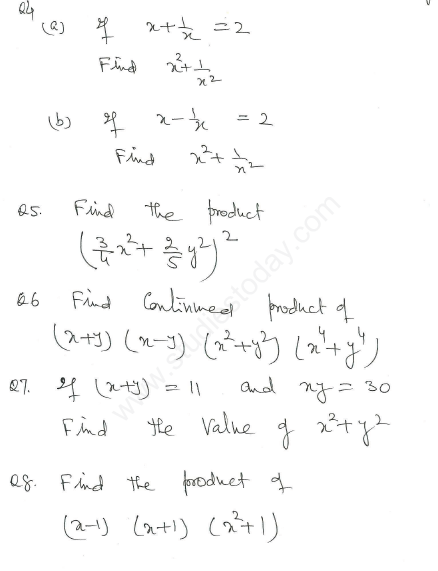 Q4
(a) If x + 1/x = 2
Find x² + 1/x²
(b) If x - 1/x = 2
Find x² + 1/x²
Q5. Find the product
(3/4 x² + 2/5 y²)²
Q6 Find Continued product of
(x+y) (x-y) (x²+y²) (x⁴+y⁴)
Q7. If (x+y) = 11 and xy = 30
Find the value of x²+y²
Q8. Find the product of
(x-1) (x+1) (x²+1)
www.studiestoday.com